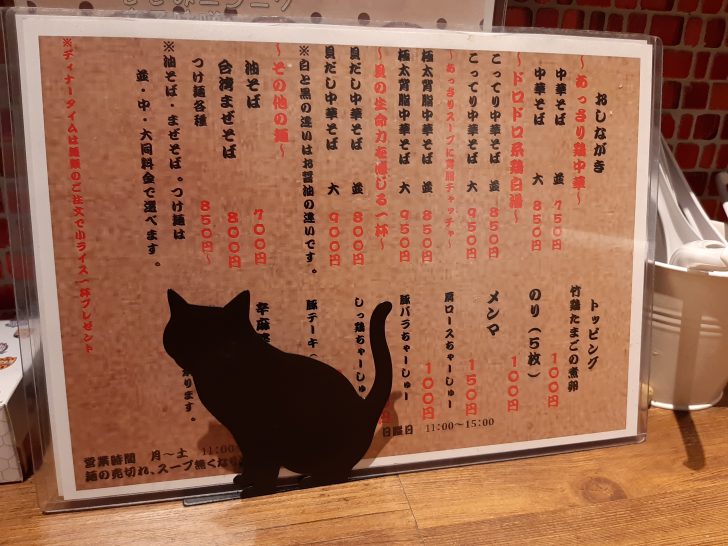 おしながき
～あっさり鶏中華～
中華そば　並　750円
中華そば　大　850円
～ドロドロ系鶏白湯～
こってり中華そば　並　850円
こってり中華そば　大　950円
～あっさりスープに背脂チャッチャ～
極太背脂中華そば　並　850円
極太背脂中華そば　大　950円
～貝の生命力を感じる一杯～
貝だし中華そば　並　800円
貝だし中華そば　大　900円
※白と黒の違いはお醤油の違いです。
～その他の麺～
油そば　700円
台湾まぜそば　800円
つけ麺各種　850円～
※油そば・まぜそば。つけ麺は
並・中・大同料金で選べます。
※ディナータイムは麺類のご注文で小ライス一杯プレゼント
トッピング
竹鶏たまごの煮卵　100円
のり（5枚）　100円
メンマ　150円
肩ロースちゃーしゅー
100円
豚バラちゃーしゅー
しっ鶏ちゃーしゅ
豚テーキ（
辛麻
ります。
営業時間　月～土　11:00
日曜日　11:00～15:00
麺の売切れ、スープ無くな